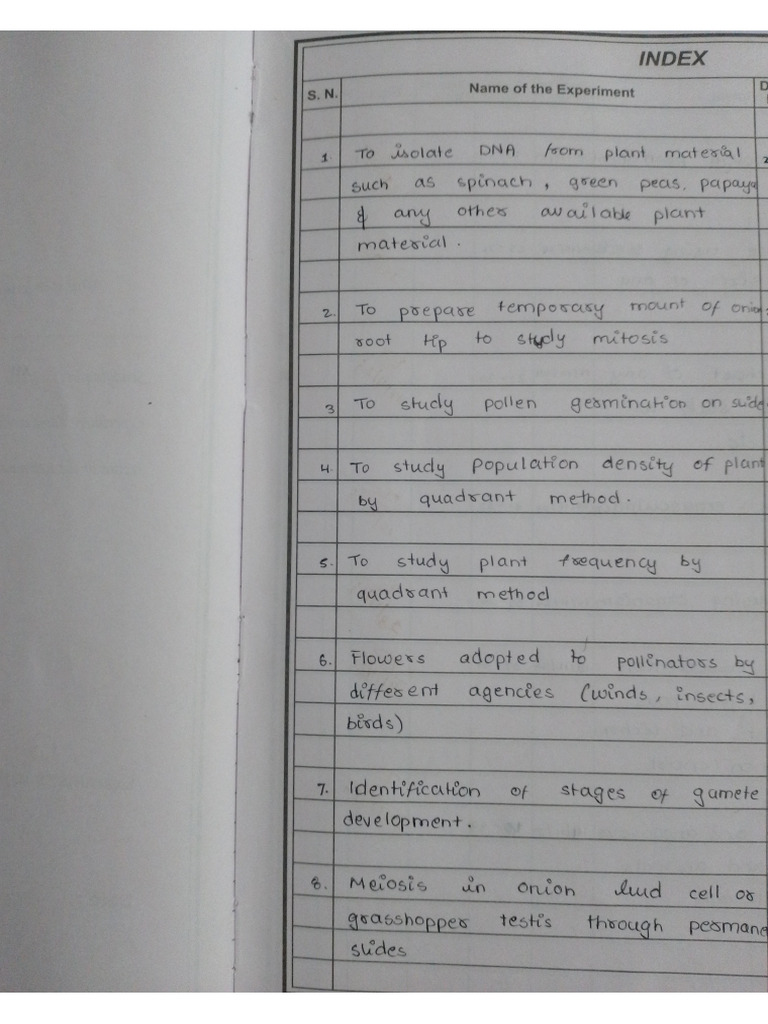 INDEX
S. N. Name of the Experiment D
1 To isolate DNA from plant material 2
such as spinach, green peas, papaya
& any other available plant
material.
2. To prepare temporary mount of onion
root tip to study mitosis
3 To study pollen germination on slide
4. To study population density of plant
by quadrant method.
5. To study plant frequency by
quadrant method
6. Flowers adopted to pollinators by
different agencies (winds, insects,
birds)
7. Identification of stages of gamete
development.
8. Meiosis in onion bud cell or
grasshopper testis through permane
slides